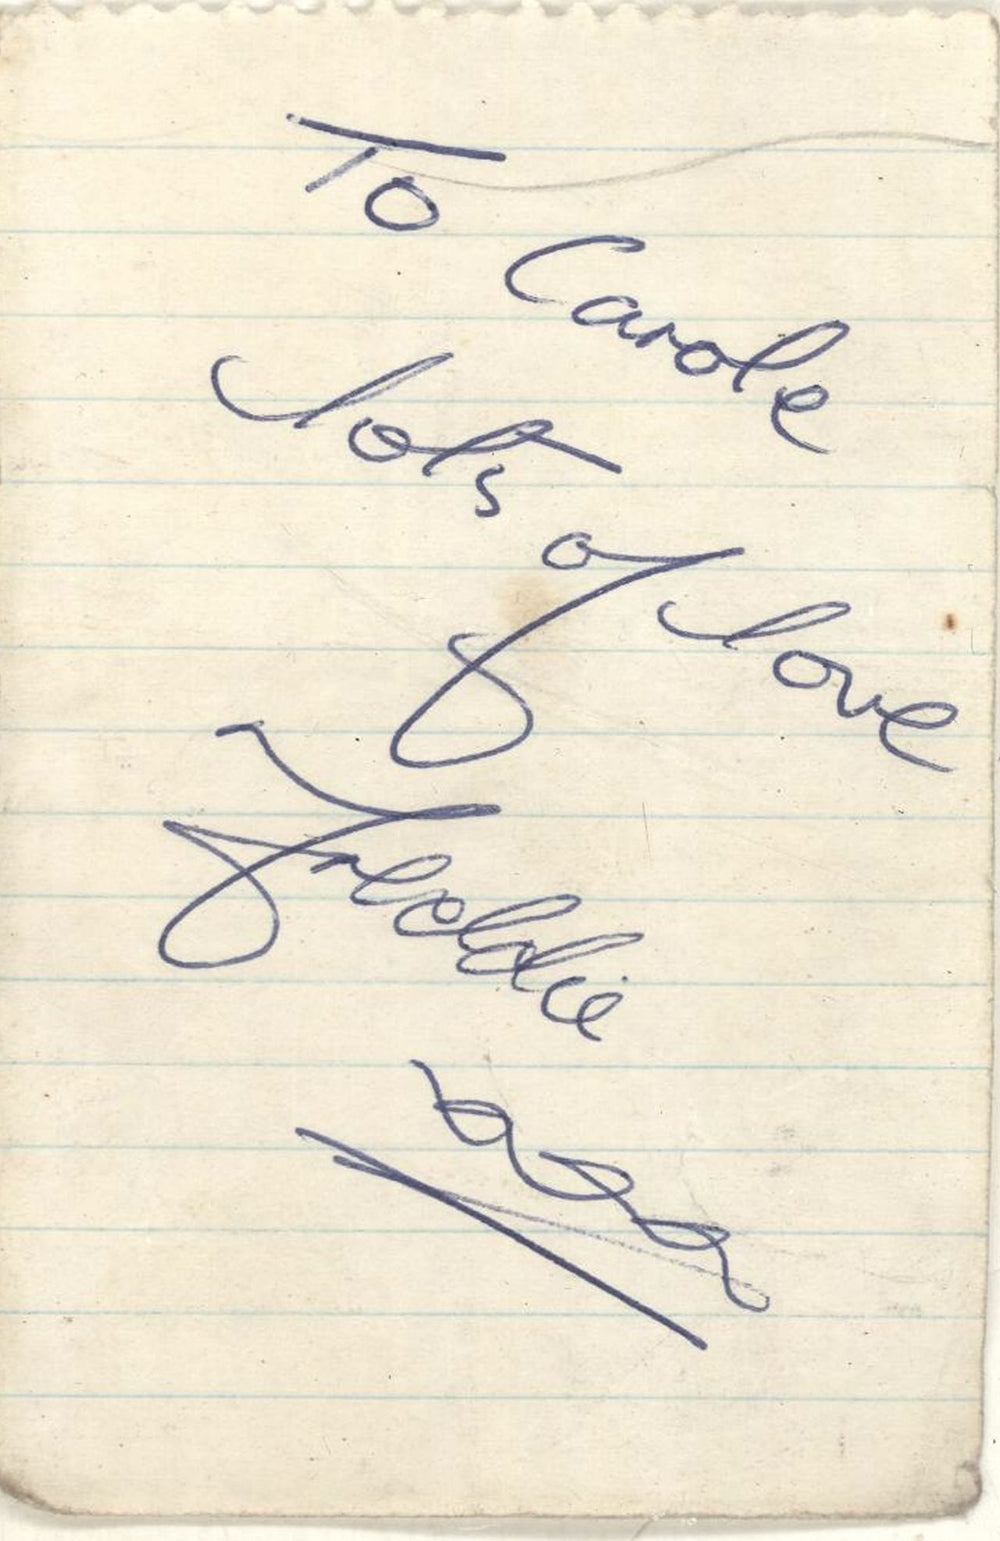 To Carole
lots of love
Freddie
xxx